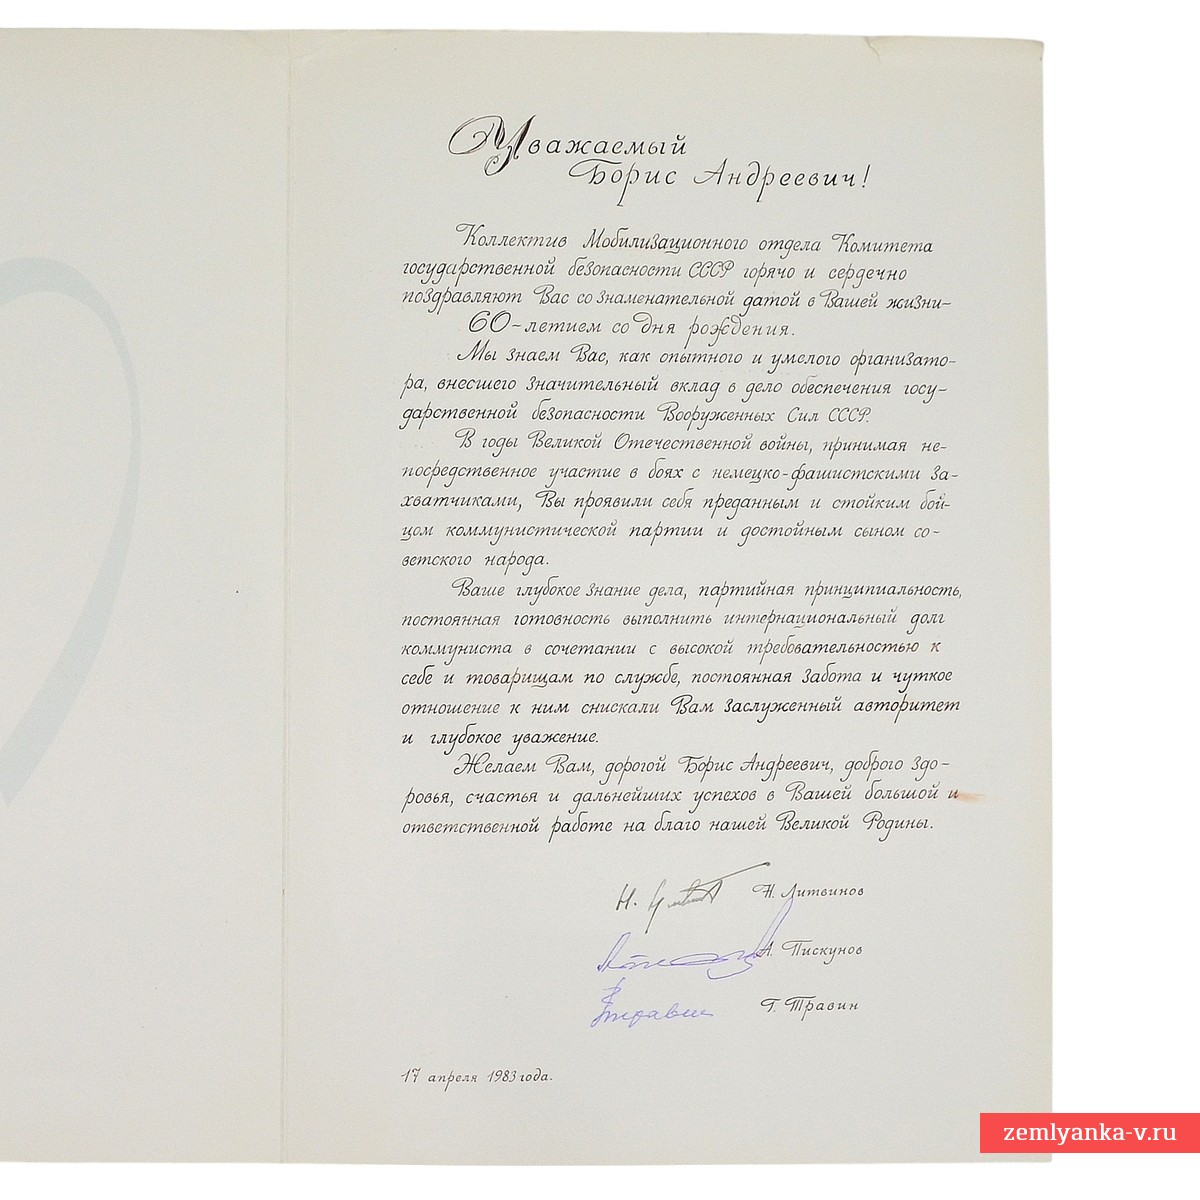 Уважаемый
Борис Андреевич!
Коллектив Мобилизационного отдела Комитета
государственной безопасности СССР горячо и сердечно
поздравляют Вас со знаменательной датой в Вашей жизни-
60-летием со дня рождения.
Мы знаем Вас, как опытного и умелого организато-
ра, внесшего значительный вклад в дело обеспечения госу-
дарственной безопасности Вооруженных Сил СССР.
В годы Великой Отечественной войны, принимая не-
посредственное участие в боях с немецко-фашистскими за-
хватчиками, Вы проявили себя преданным и стойким бой-
цом коммунистической партии и достойным сыном со-
ветского народа.
Ваше глубокое знание дела, партийная принципиальность,
постоянная готовность выполнить интернациональный долг
коммуниста в сочетании с высокой требовательностью к
себе и товарищам по службе, постоянная забота и чуткое
отношение к ним снискали Вам заслуженный авторитет
и глубокое уважение.
Желаем Вам, дорогой Борис Андреевич, доброго здо-
ровья, счастья и дальнейших успехов в Вашей большой и
ответственной работе на благо нашей Великой Родины.
Н. Литвинов
А. Пискунов
Г. Травин
17 апреля 1983 года.
zemlyanka-v.ru